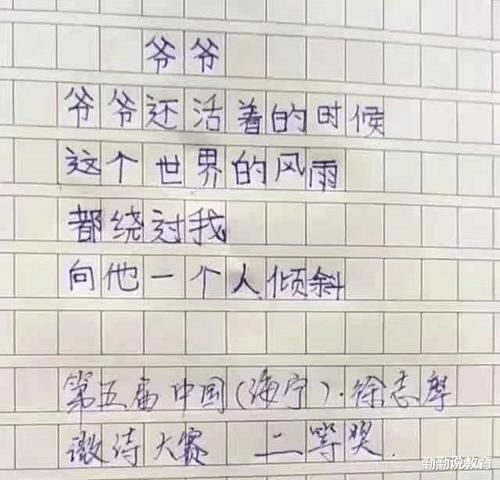 爷爷
爷爷还活着的时候
这个世界的风雨
都绕过我
向他一个人倾斜
第五届中国(海宁)·徐志摩
微诗大赛 二等奖.
勤勤说教育